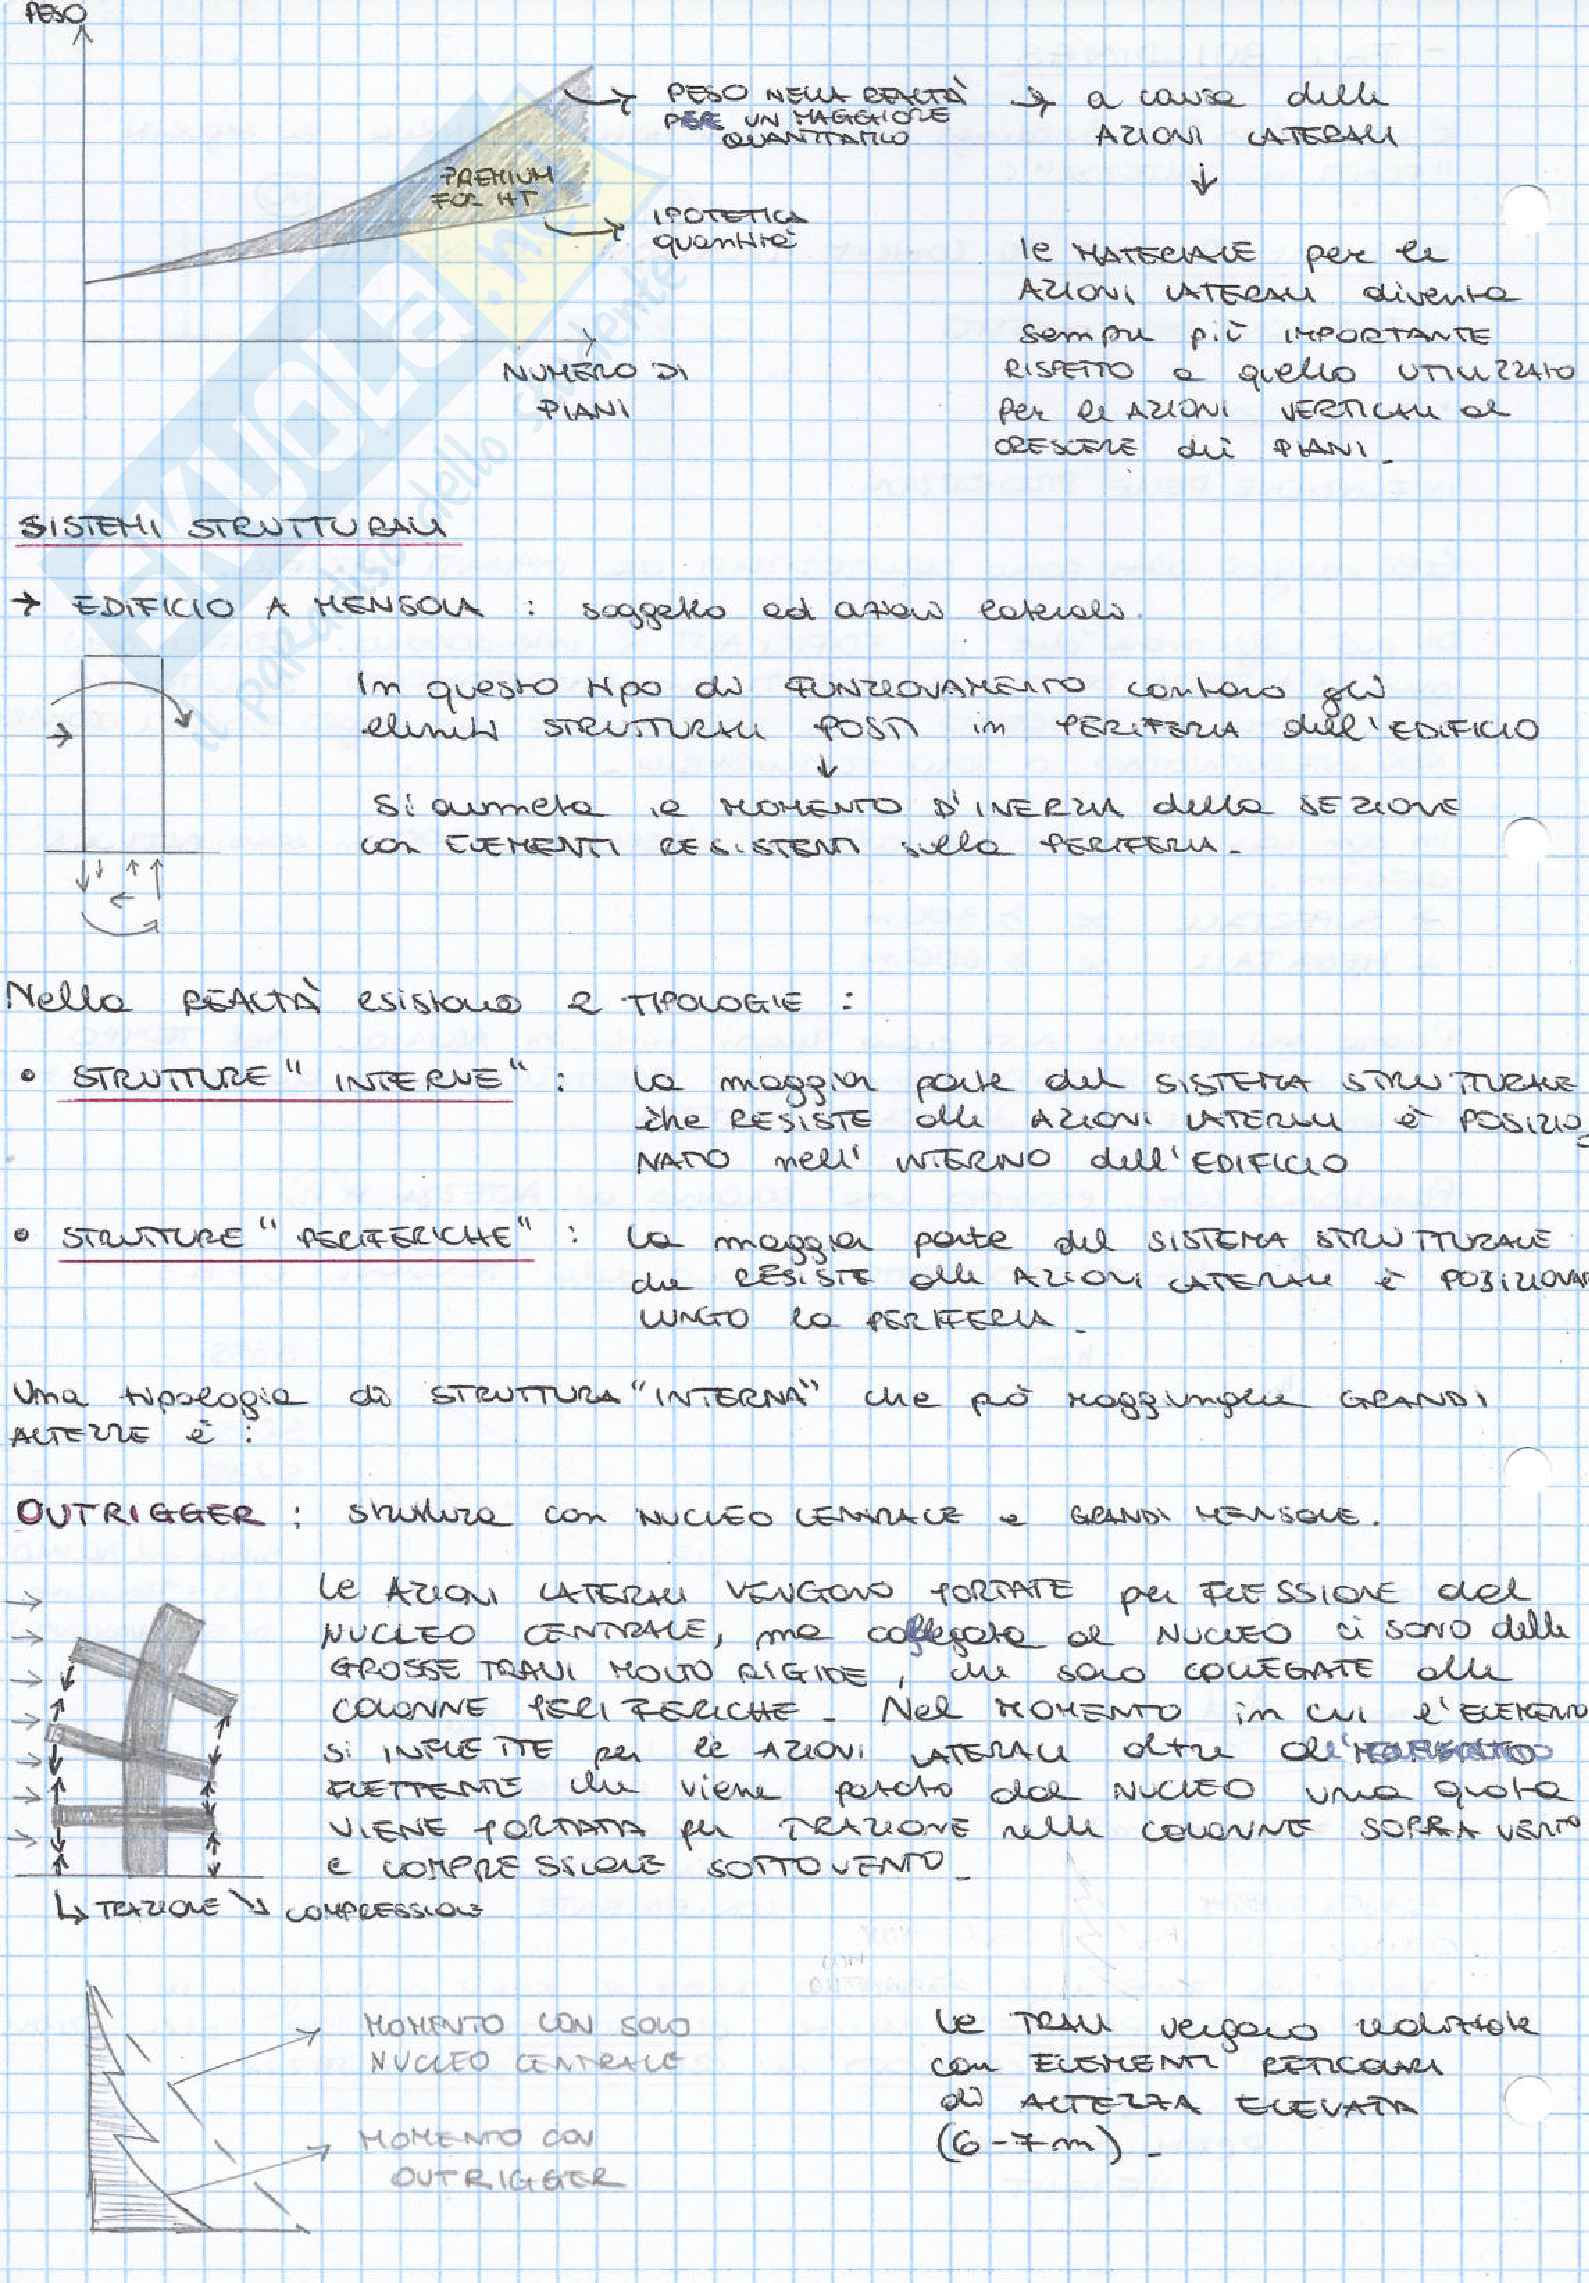 PESO
PESO NELLA REALTÀ → a causa delle
PER UN MAGGIORE AZIONI LATERALI
QUANTITATIVO
↓
PREMIUM
FOR HT
IPOTETICA
quantità
il MATERIALE per le
AZIONI LATERALI diventa
sempre più IMPORTANTE
RISPETTO a quello UTILIZZATO
per le AZIONI VERTICALI al
CRESCERE dei PIANI.
NUMERO DI
PIANI
SKUOLA.net
il paradiso dello studente
SISTEMI STRUTTURALI
→ EDIFICIO A MENSOLA : soggetto ad azioni laterali.
In questo tipo di FUNZIONAMENTO contano gli
elementi STRUTTURALI POSTI in PERIFERIA dell'EDIFICIO
↓
Si aumenta il MOMENTO D'INERZIA della SEZIONE
con ELEMENTI RESISTENTI sulla PERIFERIA.
Nella REALTÀ esistono 2 TIPOLOGIE :
• STRUTTURE "INTERNE" : La maggior parte del SISTEMA STRUTTURALE
che RESISTE alle AZIONI LATERALI è POSIZIO
NATO nell'INTERNO dell'EDIFICIO
• STRUTTURE "PERIFERICHE" : La maggior parte del SISTEMA STRUTTURALE
che RESISTE alle AZIONI LATERALI è POSIZIONA
LUNGO la PERIFERIA.
Una tipologia di STRUTTURA "INTERNA" che può raggiungere GRANDI
ALTEZZE è :
OUTRIGGER : struttura con NUCLEO CENTRALE e GRANDI MENSOLE.
Le AZIONI LATERALI VENGONO PORTATE per FLESSIONE dal
NUCLEO CENTRALE, ma collegate al NUCLEO ci sono delle
GROSSE TRAVI MOLTO RIGIDE, che sono COLLEGATE alle
COLONNE PERIFERICHE. Nel MOMENTO in cui l'ELEMENTO
si INFLETTE per le AZIONI LATERALI oltre al MOMENTO
FLETTENTE che viene portato dal NUCLEO una quota
VIENE PORTATA per TRAZIONE nelle COLONNE SOPRA VENTO
e COMPRESSIONE SOTTOVENTO.
↳ TRAZIONE ↘ COMPRESSIONE
MOMENTO CON SOLO
NUCLEO CENTRALE
MOMENTO CON
OUTRIGGER
Le TRAVI vengono realizzate
con ELEMENTI RETICOLARI
di ALTEZZA ELEVATA
(6-7m).